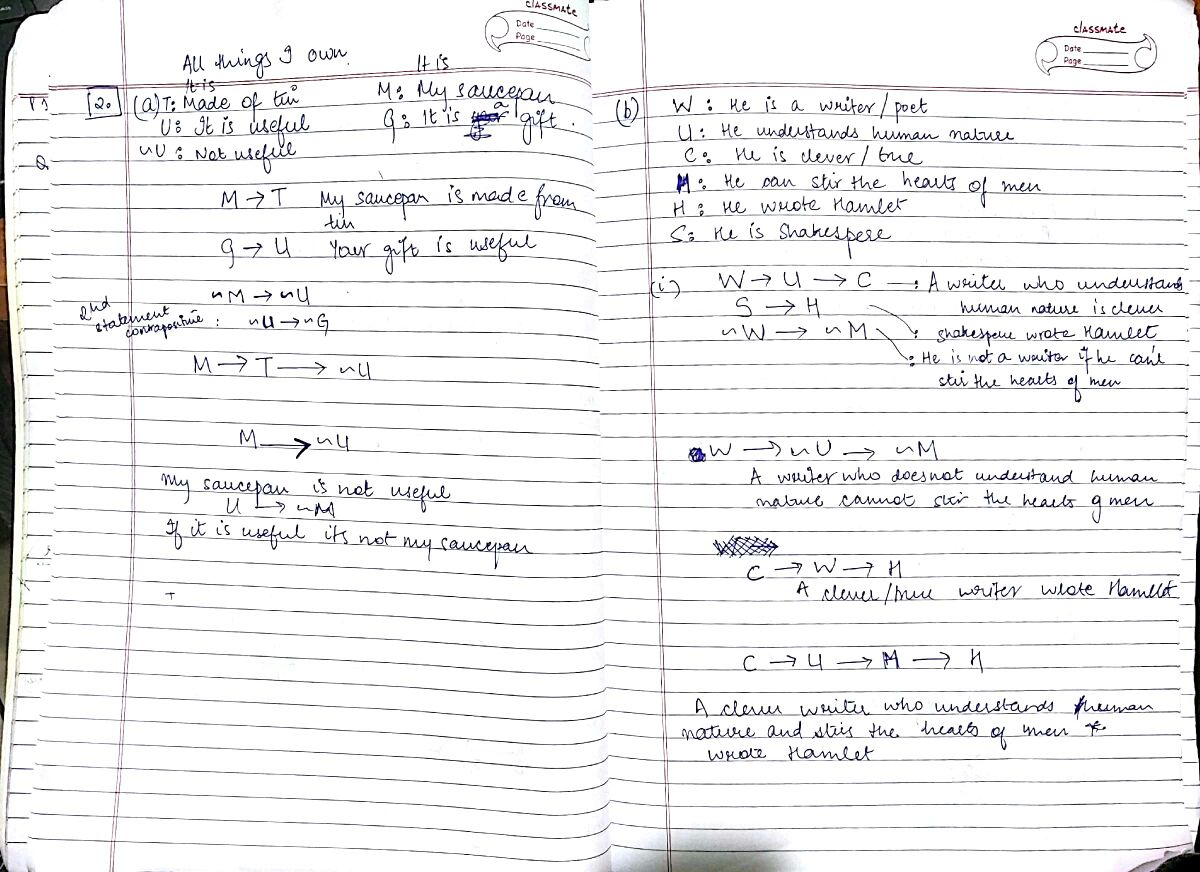 classmate
Date
Page
All things I own.
It is
It is
2.
(a) T: Made of tin
M: My saucepan
U: It is useful
G: It is a gift.
~U: Not useful
M → T My saucepan is made from
tin
G → U Your gift is useful
~M → ~U
2nd
statement
contrapositive: ~U → ~G
M → T → ~U
M → ~U
My saucepan is not useful
U → ~M
If it is useful its not my saucepan
classmate
Date
Page
(b) W: He is a writer/poet
U: He understands human nature
C: He is clever/true
M: He can stir the hearts of men
H: He wrote Hamlet
S: He is Shakespere
(i) W → U → C : A writer who understands
S → H human nature is clever
~W → ~M : Shakespere wrote Hamlet
: He is not a writer if he can't
stir the hearts of men
W → ~U → ~M
A writer who doesnot understand human
nature cannot stir the hearts of men
C → W → H
A clever/true writer wrote Hamlet
C → U → M → H
A clever writer who understands human
nature and stirs the hearts of men
wrote Hamlet